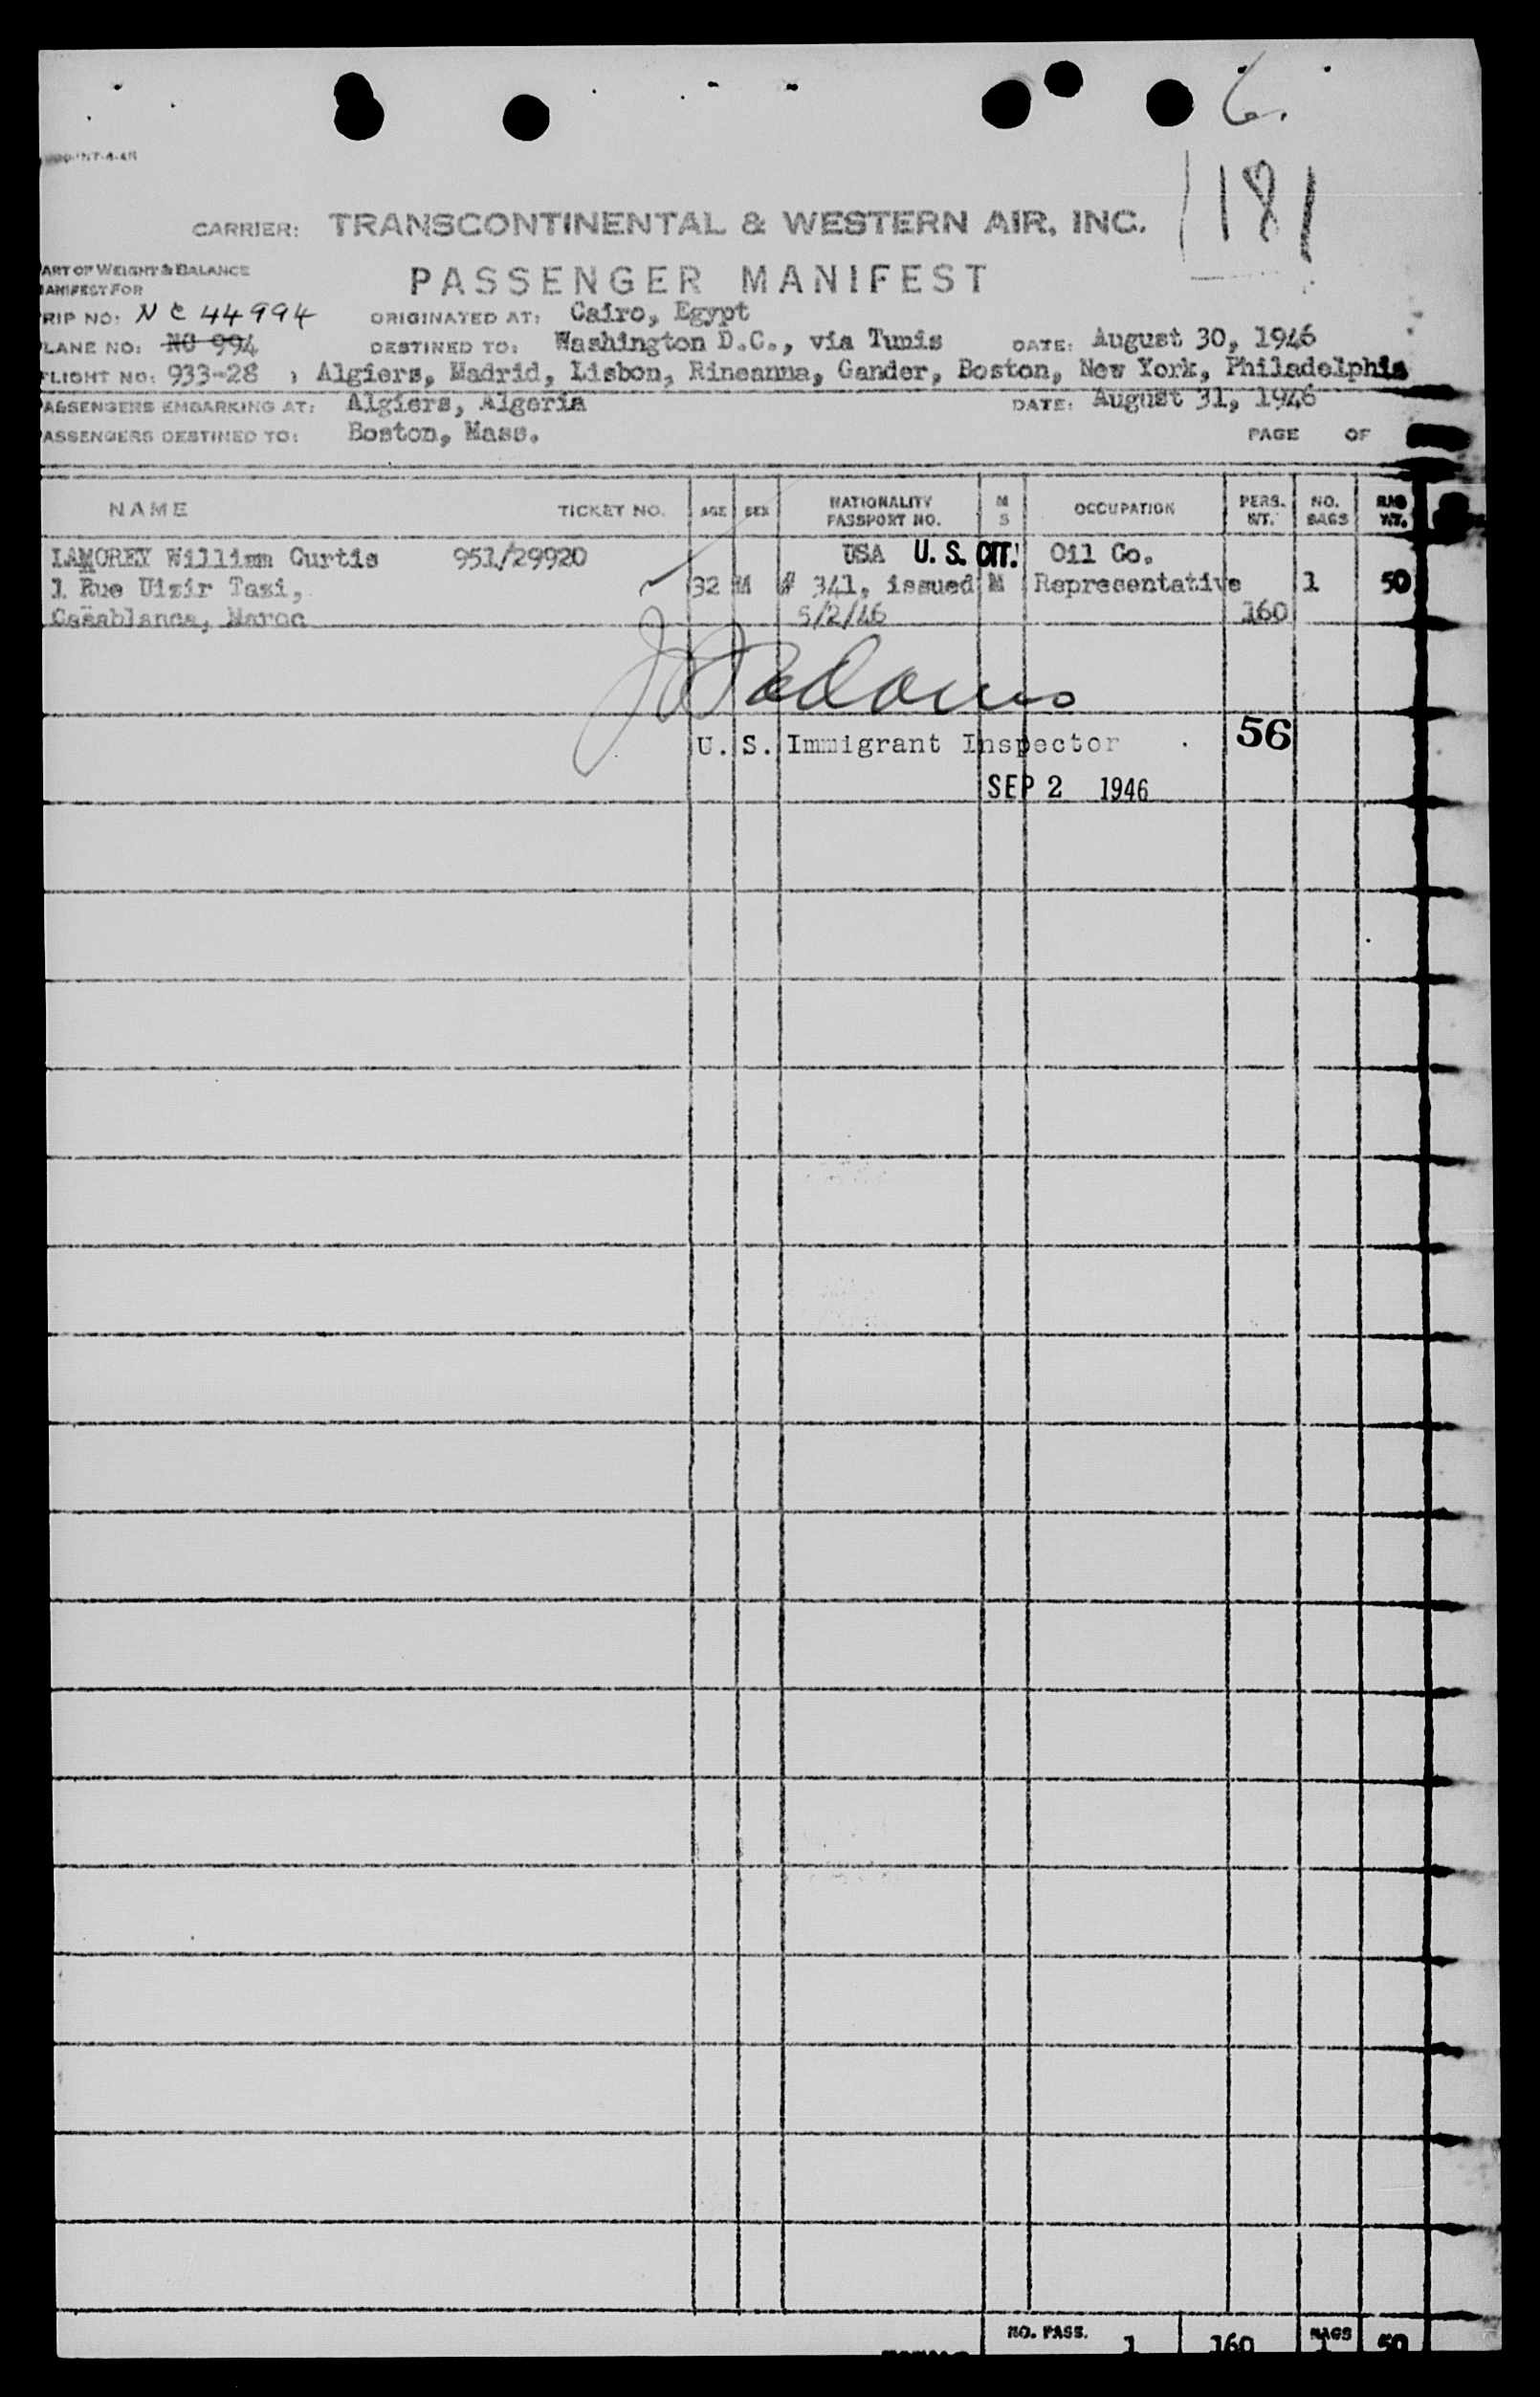 6.
181
CARRIER: TRANSCONTINENTAL & WESTERN AIR, INC.
ART OF WEIGHT & BALANCE
ANIFEST FOR
PASSENGER MANIFEST
RIP NO: N C 44994 ORIGINATED AT: Cairo, Egypt
LANE NO: NC 994 DESTINED TO: Washington D.C., via Tunis DATE: August 30, 1946
FLIGHT NO: 933-28 , Algiers, Madrid, Lisbon, Rineanna, Gander, Boston, New York, Philadelphia
ASSENGERS EMBARKING AT: Algiers, Algeria DATE: August 31, 1946
ASSENGERS DESTINED TO: Boston, Mass. PAGE OF
NAME TICKET NO. AGE SEX NATIONALITY PASSPORT NO. M S OCCUPATION PERS. WT. NO. BAGS BAG WT.
LAMOREY William Curtis 951/29920 USA U. S. CIT. Oil Co.
1 Rue Uizir Tazi, 32 M # 341, issued M Representative 1 50
Casablanca, Maroc 5/2/46 160
Adams
U. S. Immigrant Inspector 56
SEP 2 1946
NO. PASS. 1 160 BAGS 1 50